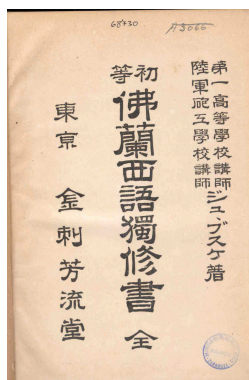 68430
A5066
第一高等學校講師
陸軍砲工學校講師
ジュ、ブスケ著
初等
佛蘭西語獨修書 全
東京 金刺芳流堂